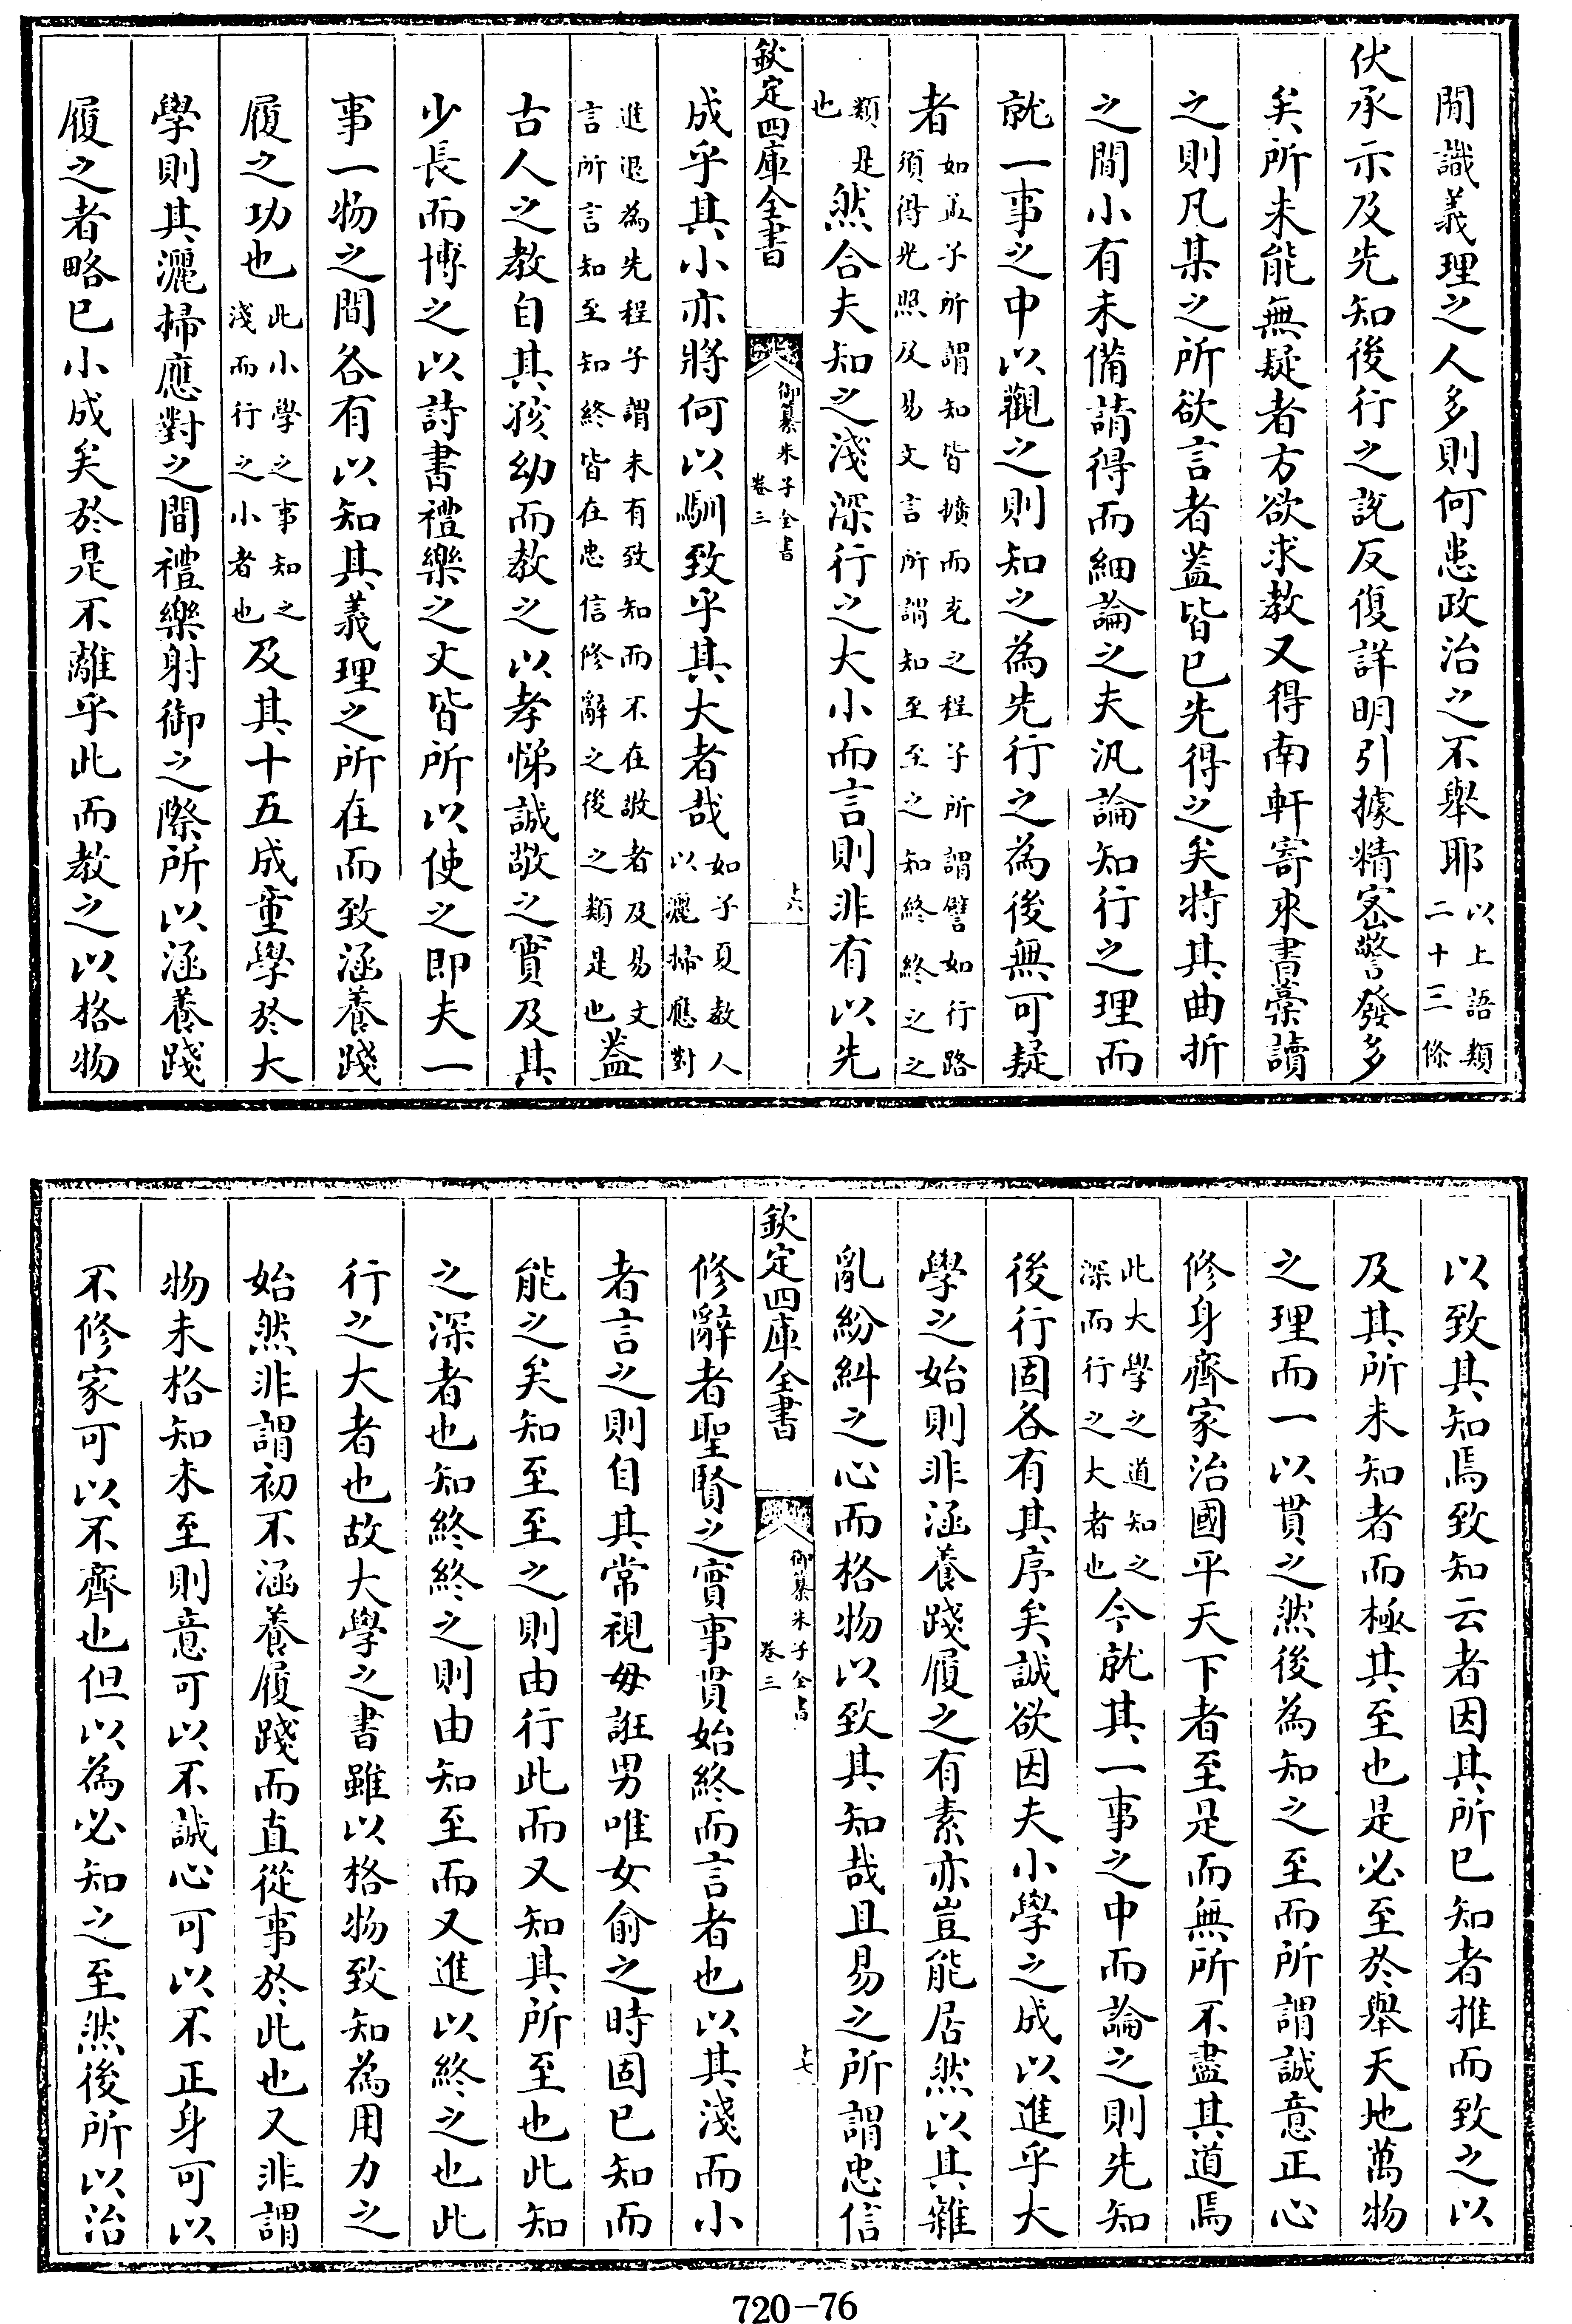 閒識義理之人多則何患政治之不舉耶以上語類二十三條
伏承示及先知後行之說反復詳明引據精密警發多
矣所未能無疑者方欲求教又得南軒寄來書藁讀
之則凡某之所欲言者葢皆已先得之矣特其曲折
之間小有未備請得而細論之夫汎論知行之理而
就一事之中以觀之則知之為先行之為後無可疑
者如孟子所謂知皆擴而充之程子所謂譬如行路須得光照及易文言所謂知至至之知終終之之
類是也然合夫知之淺深行之大小而言則非有以先
欽定四庫全書
御纂朱子全書
卷三
十六
成乎其小亦將何以馴致乎其大者哉如子夏教人以灑掃應對
進退為先程子謂未有致知而不在敬者及易文言所言知至知終皆在忠信修辭之後之類是也葢
古人之教自其孩幼而教之以孝悌誠敬之實及其
少長而博之以詩書禮樂之文皆所以使之即夫一
事一物之間各有以知其義理之所在而致涵養踐
履之功也此小學之事知之淺而行之小者也及其十五成童學於大
學則其灑掃應對之間禮樂射御之際所以涵養踐
履之者略已小成矣於是不離乎此而教之以格物
以致其知焉致知云者因其所已知者推而致之以
及其所未知者而極其至也是必至於舉天地萬物
之理而一以貫之然後為知之至而所謂誠意正心
修身齊家治國平天下者至是而無所不盡其道焉
此大學之道知之深而行之大者也今就其一事之中而論之則先知
後行固各有其序矣誠欲因夫小學之成以進乎大
學之始則非涵養踐履之有素亦豈能居然以其雜
亂紛糾之心而格物以致其知哉且易之所謂忠信
欽定四庫全書
御纂朱子全書
卷三
十七
修辭者聖賢之實事貫始終而言者也以其淺而小
者言之則自其常視毋誑男唯女俞之時固已知而
能之矣知至至之則由行此而又知其所至也此知
之深者也知終終之則由知至而又進以終之也此
行之大者也故大學之書雖以格物致知為用力之
始然非謂初不涵養履踐而直從事於此也又非謂
物未格知未至則意可以不誠心可以不正身可以
不修家可以不齊也但以為必知之至然後所以治
720-76